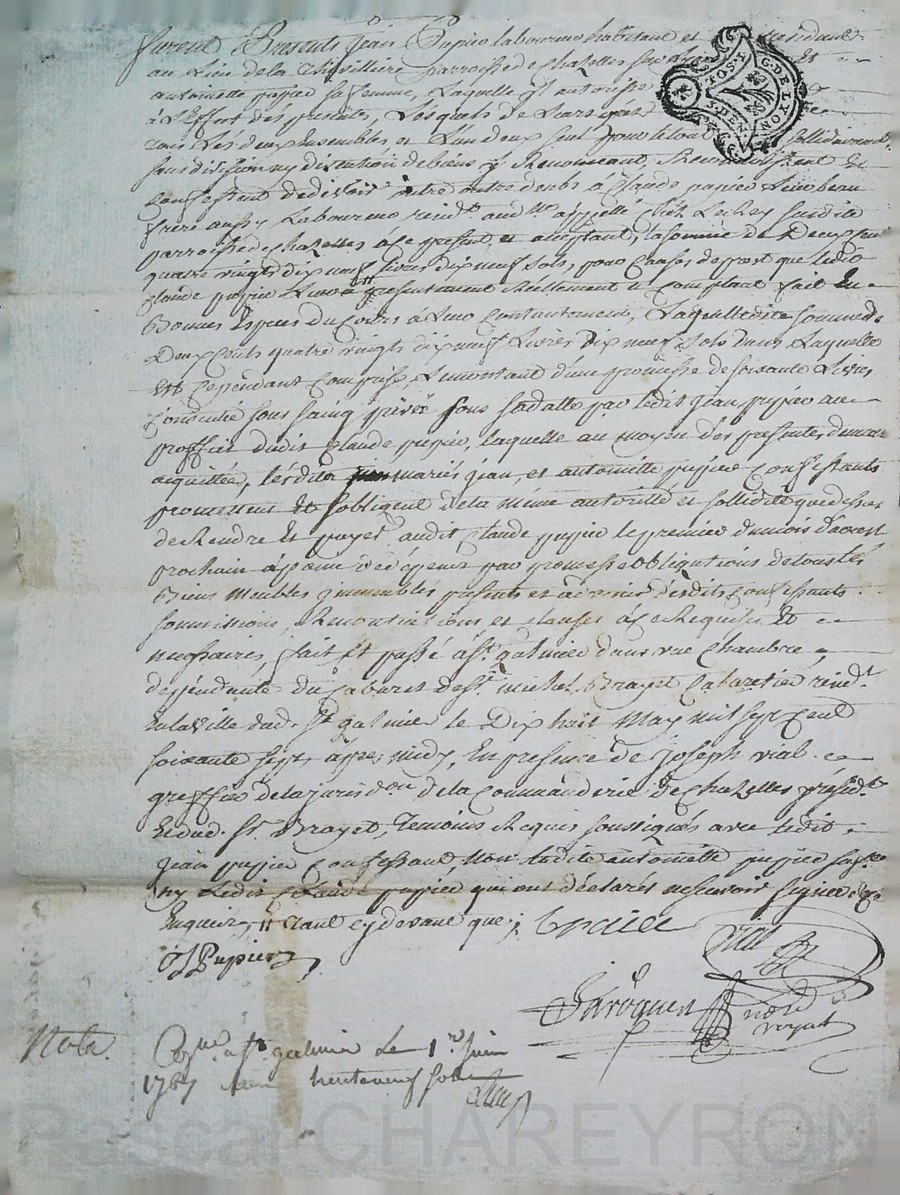 furent Presents jean Pupier laboureur habitant et
au Lieu de la Thevilliere parroisse de chazelles sur
antoinette pupier sa femme, Laquelle il autorise Et
à L'Effet des presentes, Lesquels de Leurs gré
tous Les deux Ensembles et L'un deux seul pour le tout sollidairement
sans division ny discution de biens y Renonceant, Reconnoissent Et
Confessent devoir à Claude pupier Leur beau
frere aussy Laboureur resid.t au appellé chez Le susdite
parroisse de chazelles à ce present et aceptant, la somme de Deux cent
quatre vingts dix neuf livres dix neuf sols, pour Causes de prest que ledit
Claude pupier Leur a presentement Reellement et Comptant fait En
Bonnes Especes du Cours à Leur Contantement, Laquelle dite somme de
Deux Cents quatre vingts dix neuf Livres Dix neuf sols dans Laquelle
Est Cependant Comprise Le montant d'une promesse de soixante Livres
Consentie sous saing privée sous sa datte par ledit jean pupier au
proffict dudit Claude pupier, laquelle au moyen des presentes demeure
acquittée, lesdits mariés jean, et antoinette pupier Confessants
promettent Et sobligent de la meme autorité et sollidité que dessus
de Rendre Et payer audit Claude pupier le premier du mois d'aoust
prochain à peine de depens par promesse obligations de tous Les
Biens meubles immeubles presents et advenir desdits confessants
soumissions, Renontiations et clauses à ce Requises Et
necessaires, fait Et passé à S.t galmier dans une Chambre,
dependante du Cabaret de S.r michel Brayet Cabaretier resid.t
En la Ville dud. S.t galmier le Dix huit May mil sept Cent
soixante sept après midy, En presence de joseph vial
greffier de la jurisd.on de la Commanderie de chazelles
Et dud. S.r Brayet, Temoins Requis soussignés avec ledit
jean pupier Confessant, Non ladite antoinette pupier sa fe
ny Ledit Claude pupier qui ont déclarés ne scavoir signer de ce
Enquis, tant cy devant que;
J Pupier
Vial
Nota.
C à S.t galmier Le 1.er juin
1767 trente neuf sols
G. DE LYON
Pascal CHAREYRON